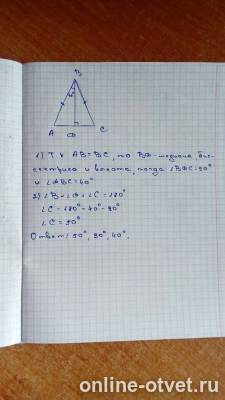 B
A
D
C
1) Т.к AB=BC, то BD-медиана, бис-
сектриса и высота, тогда ∠BDC=90°
и ∠DBC=40°
2) ∠B+∠D+∠C=180°
∠C=180°-40°-90°
∠C=50°
Ответ: 50°, 90°, 40°.
online-otvet.ru